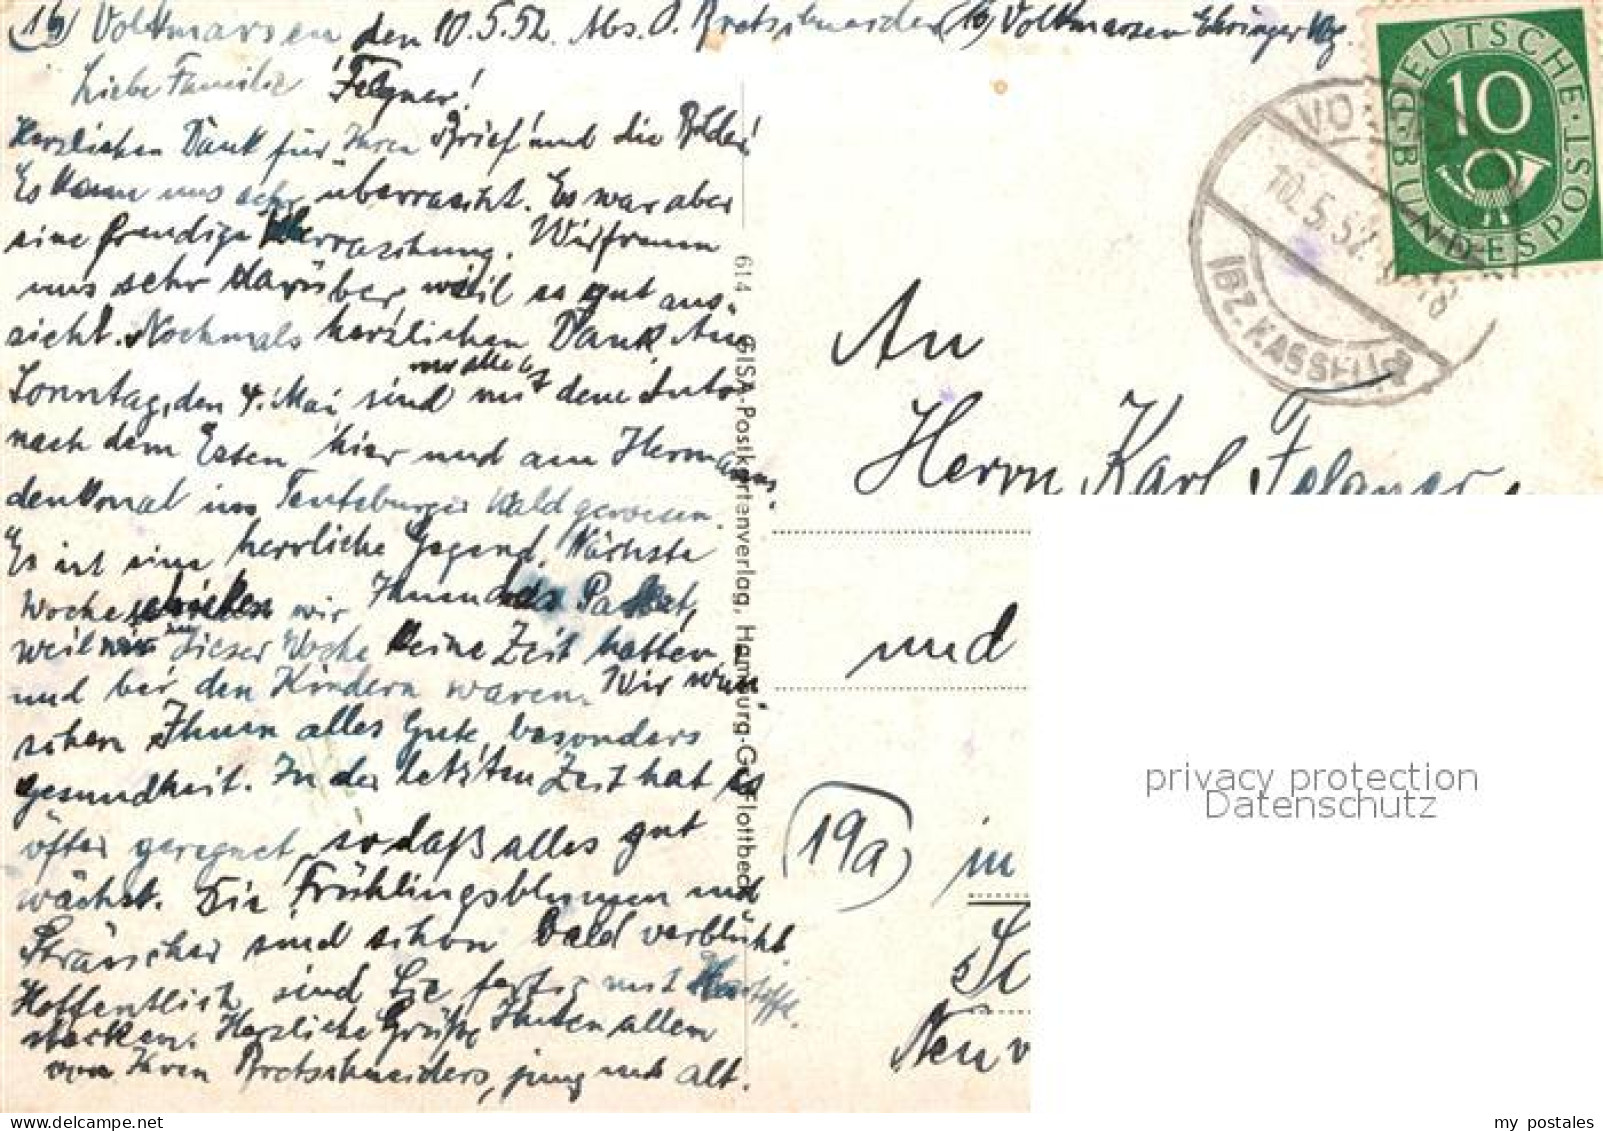 (16) Volkmarsen den 10.5.52. Abs. O. Bretschneider (16) Volkmarsen Ehringer Wg.
Liebe Familie Felgner!
Herzlichen Dank für Ihren Brief und die Bilder!
Es kam uns sehr überrascht. Es war aber
eine freudige Überraschung. Wir freuen
uns sehr darüber, weil es gut aus-
sieht. Nochmals herzlichen Dank. Am
Sonntag, den 4. Mai, sind wir alle mit dem Auto
nach dem Essen hier und am Hermanns-
denkmal im Teutoburger Wald gewesen.
Es ist eine herrliche Gegend. Nächste
Woche schicken wir Ihnen das Paket,
weil wir zu dieser Woche keine Zeit hatten,
und bei den Kindern waren. Wir wün-
schen Ihnen alles Gute, besonders
Gesundheit. In der letzten Zeit hat es
öfter geregnet, so daß alles gut
wächst. Die Frühlingsblumen und
Sträucher sind schon bald verblüht.
Hoffentlich sind Sie fertig mit Kartoffel
stecken. Herzliche Grüße Ihnen allen
von Ihren Bretschneiders, jung und alt.
614 GISA-Postkartenverlag, Hamburg-Gr. Flottbek
DEUTSCHE BUNDESPOST
10
10.5.52
(BZ. KASSEL)
An
Herrn Karl Felgner
und
(19a) in
Neuv
privacy protection
Datenschutz
my postales